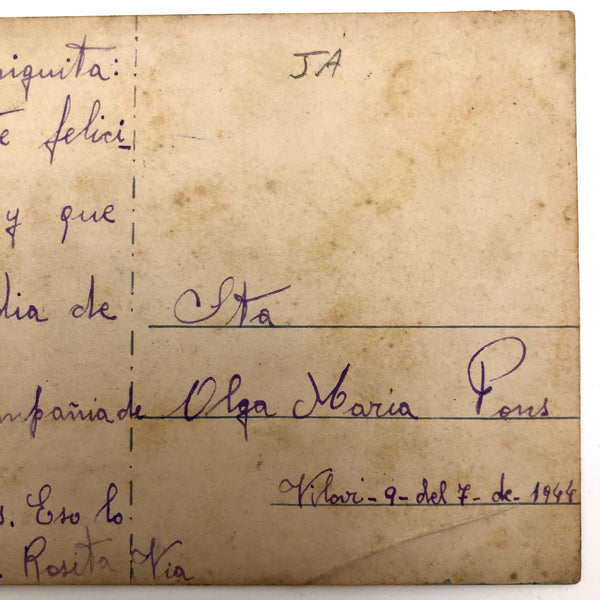 JA
iguita:
te felici
y que
dia de
mpañia de
s. Eso lo
Rosita Via
Sta
Olga Maria Pons
Vilovi - 9 - del 7 - de - 1944